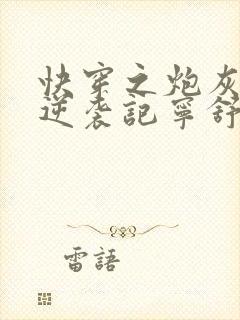 快穿之炮灰
逆袭記寧舒
雷語